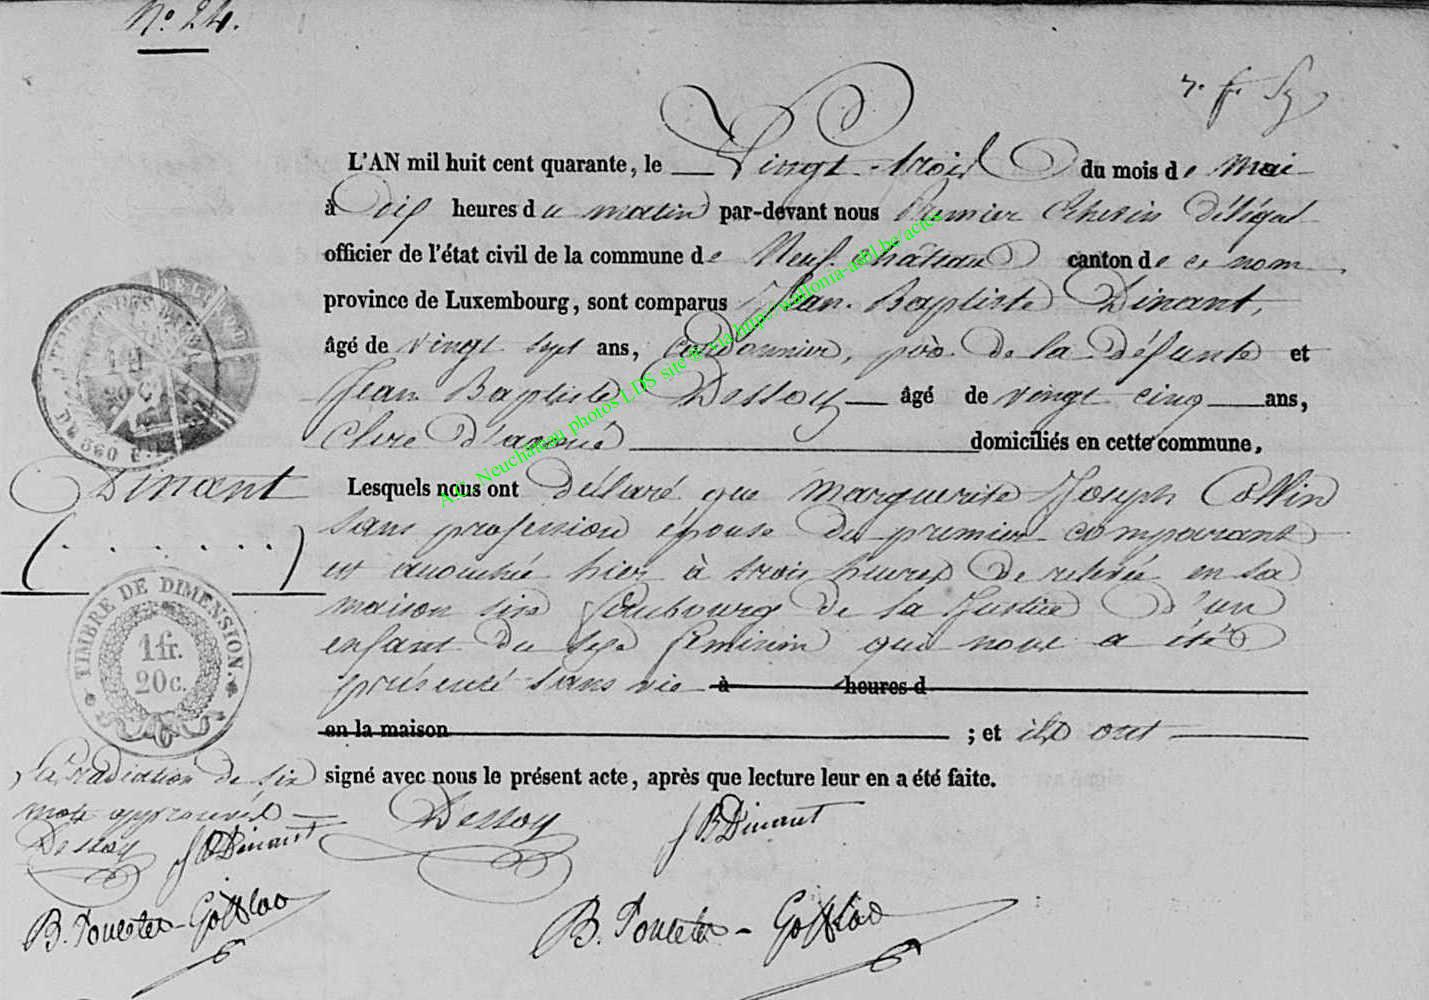 N° 24.
L'AN mil huit cent quarante, le Vingt-trois du mois de Mai
à dix heures du matin par-devant nous Premier Echevin délégué
officier de l'état civil de la commune de Neufchâteau canton de ce nom
province de Luxembourg, sont comparus Jean-Baptiste Dinant,
âgé de vingt sept ans, cordonnier, père de la défunte et
Jean Baptiste Dessoy âgé de vingt cinq ans,
Clerc d'avoué domiciliés en cette commune,
Dinant
(. . . . . . .)
Lesquels nous ont déclaré que Marguerite Joseph Collin
sans profession épouse du premier comparant
est accouchée hier à trois heures de relevée en sa
maison sise faubourg de la Justice d'un
enfant du sexe féminin qui nous a été
présenté sans vie à heures d
en la maison ; et ils ont
signé avec nous le présent acte, après que lecture leur en a été faite.
TIMBRE DE DIMENSION.
1 fr.
20 c.
La radiation de six
mots approuvés
Dessoy JBDinant
B. Poncelet-Goffloo
Dessoy JBDinant
B. Poncelet-Goffloo
A.C. Neuchateau photos LDS site via http://wallonia-asbl.be/actes